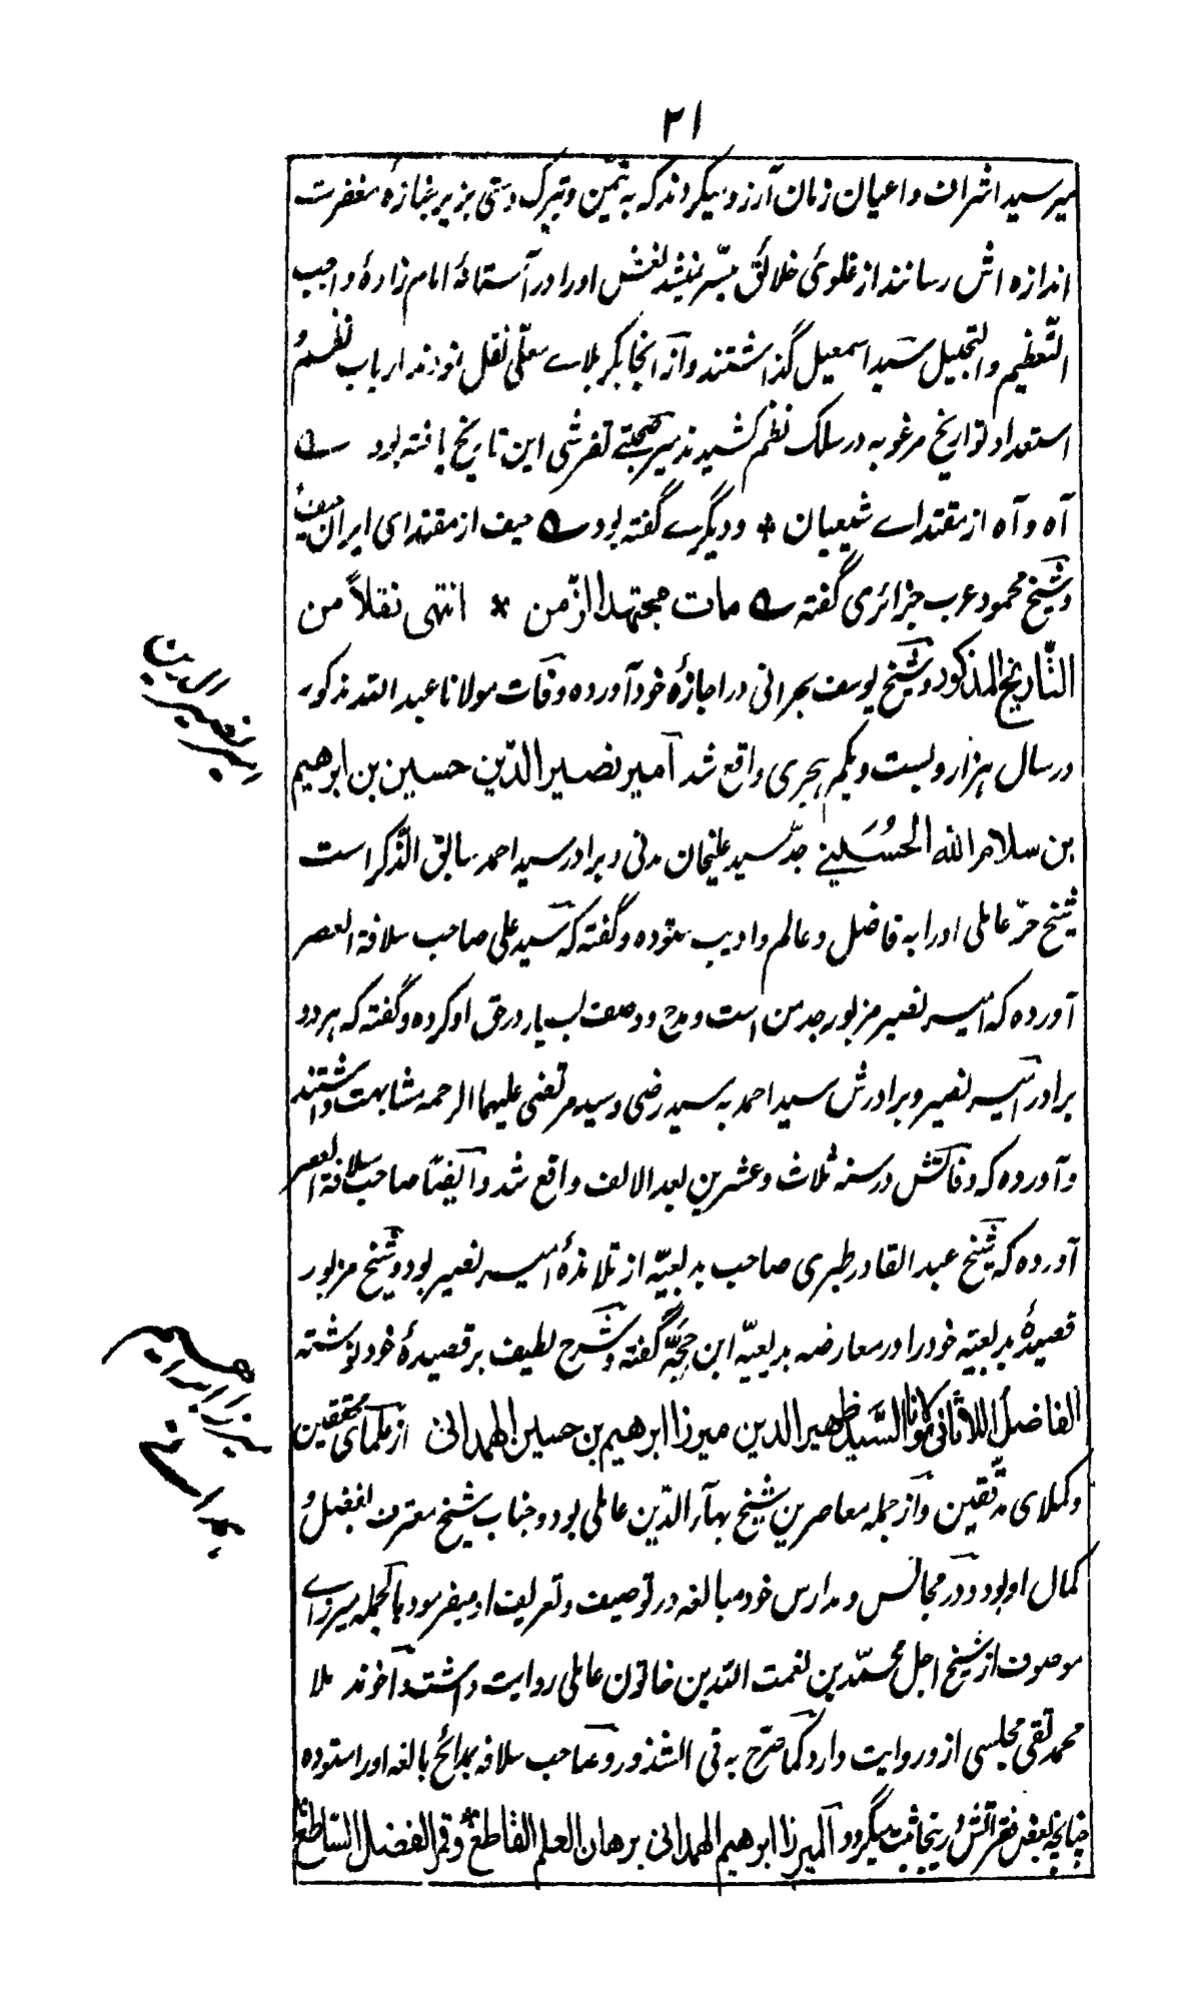 ۲۱
میرسید اشراف و اعیان زمان آرزو میکردند که به تیمّن و تبرک دستی بزیر جنازهٔ مغفرت
اندازه اش رسانند از غلوئ خلائق میسّر نمیشد نعش اورا در آستانهٔ امام زادهٔ واجب
التّعظیم والتبجیل سید اسمعیل گذاشتند و از آنجا بکربلاے معلّی نقل نمودند ارباب نظم و
استعداد تواریخ مرغوبه در سلک نظم کشیدند میر صحبتے تفرشی این تاریخ یافته بود ؎
آه و آه از مقتداے شیعیان * و دیگرے گفته بود ؎ حیف از مقتدای ایران حیف
و شیخ محمود عرب جزائری گفته ؎ مات مجتهد الزّمن * انتهی نقلاً من
التّاریخ المذکور و شیخ یوسف بحرانی در اجازهٔ خود آورده وفات مولانا عبد الله مذکور
در سال هزار و بست و یکم هجری واقع شد امیر نصیر الدّین حسین بن ابرهیم
بن سلام الله الحُسَینے جدّ سید علیخان مدنی و برادر سید احمد سابق الذّکر است
شیخ حرّ عاملی اورا به فاضل و عالم و ادیب ستوده و گفته که سید علی صاحب سلافة العصر
آورده که امیر نصیر مزبور جد من است و مدح و وصف بسیار در حق او کرده و گفته که هر دو
برادر امیر نصیر و برادرش سید احمد به سید رضی و سید مرتضی علیهما الرحمه مشابهت داشتند
و آورده که وفاتش در سنه ثلاث و عشرین بعد الالف واقع شد و ایضًا صاحب سلافة العصر
آورده که شیخ عبد القادر طبری صاحب بدیعیّه از تلامذهٔ امیر نصیر بود و شیخ مزبور
قصیدهٔ بدیعیّه خود را در معارضه بدیعیّه ابن حجّه گفته و شرح لطیف بر قصیدهٔ خود نوشته
الفاضل اللاثانی مولانا السّید ظهیر الدین میرزا ابرهیم بن حسین الهمدانی از علمای محققین
و کملای مدقّقین و از جمله معاصرین شیخ بهآء الدّین عاملی بود و جناب شیخ معترف بفضل و
کمال او بود و در مجالس و مدارس خود مبالغه در توصیف و تعریف او میفرمود بالجمله میرزاے
موصوف از شیخ اجل محمّد بن نعمت الله بن خاتون عاملی روایت داشت و آخوند ملا
محمد تقی مجلسی از و روایت دارد کما صرّح به فی الشذور و صاحب سلافه بمدائح بالغه اورا ستوده
چنانچه بعض فقراتش درینجا ثبت میگردد المیرزا ابرهیم الهمدانی برهان العلم القاطع و قمر الفضل الساطع
امیر نصیر الدین
میرزا ابراهیم
همدانے